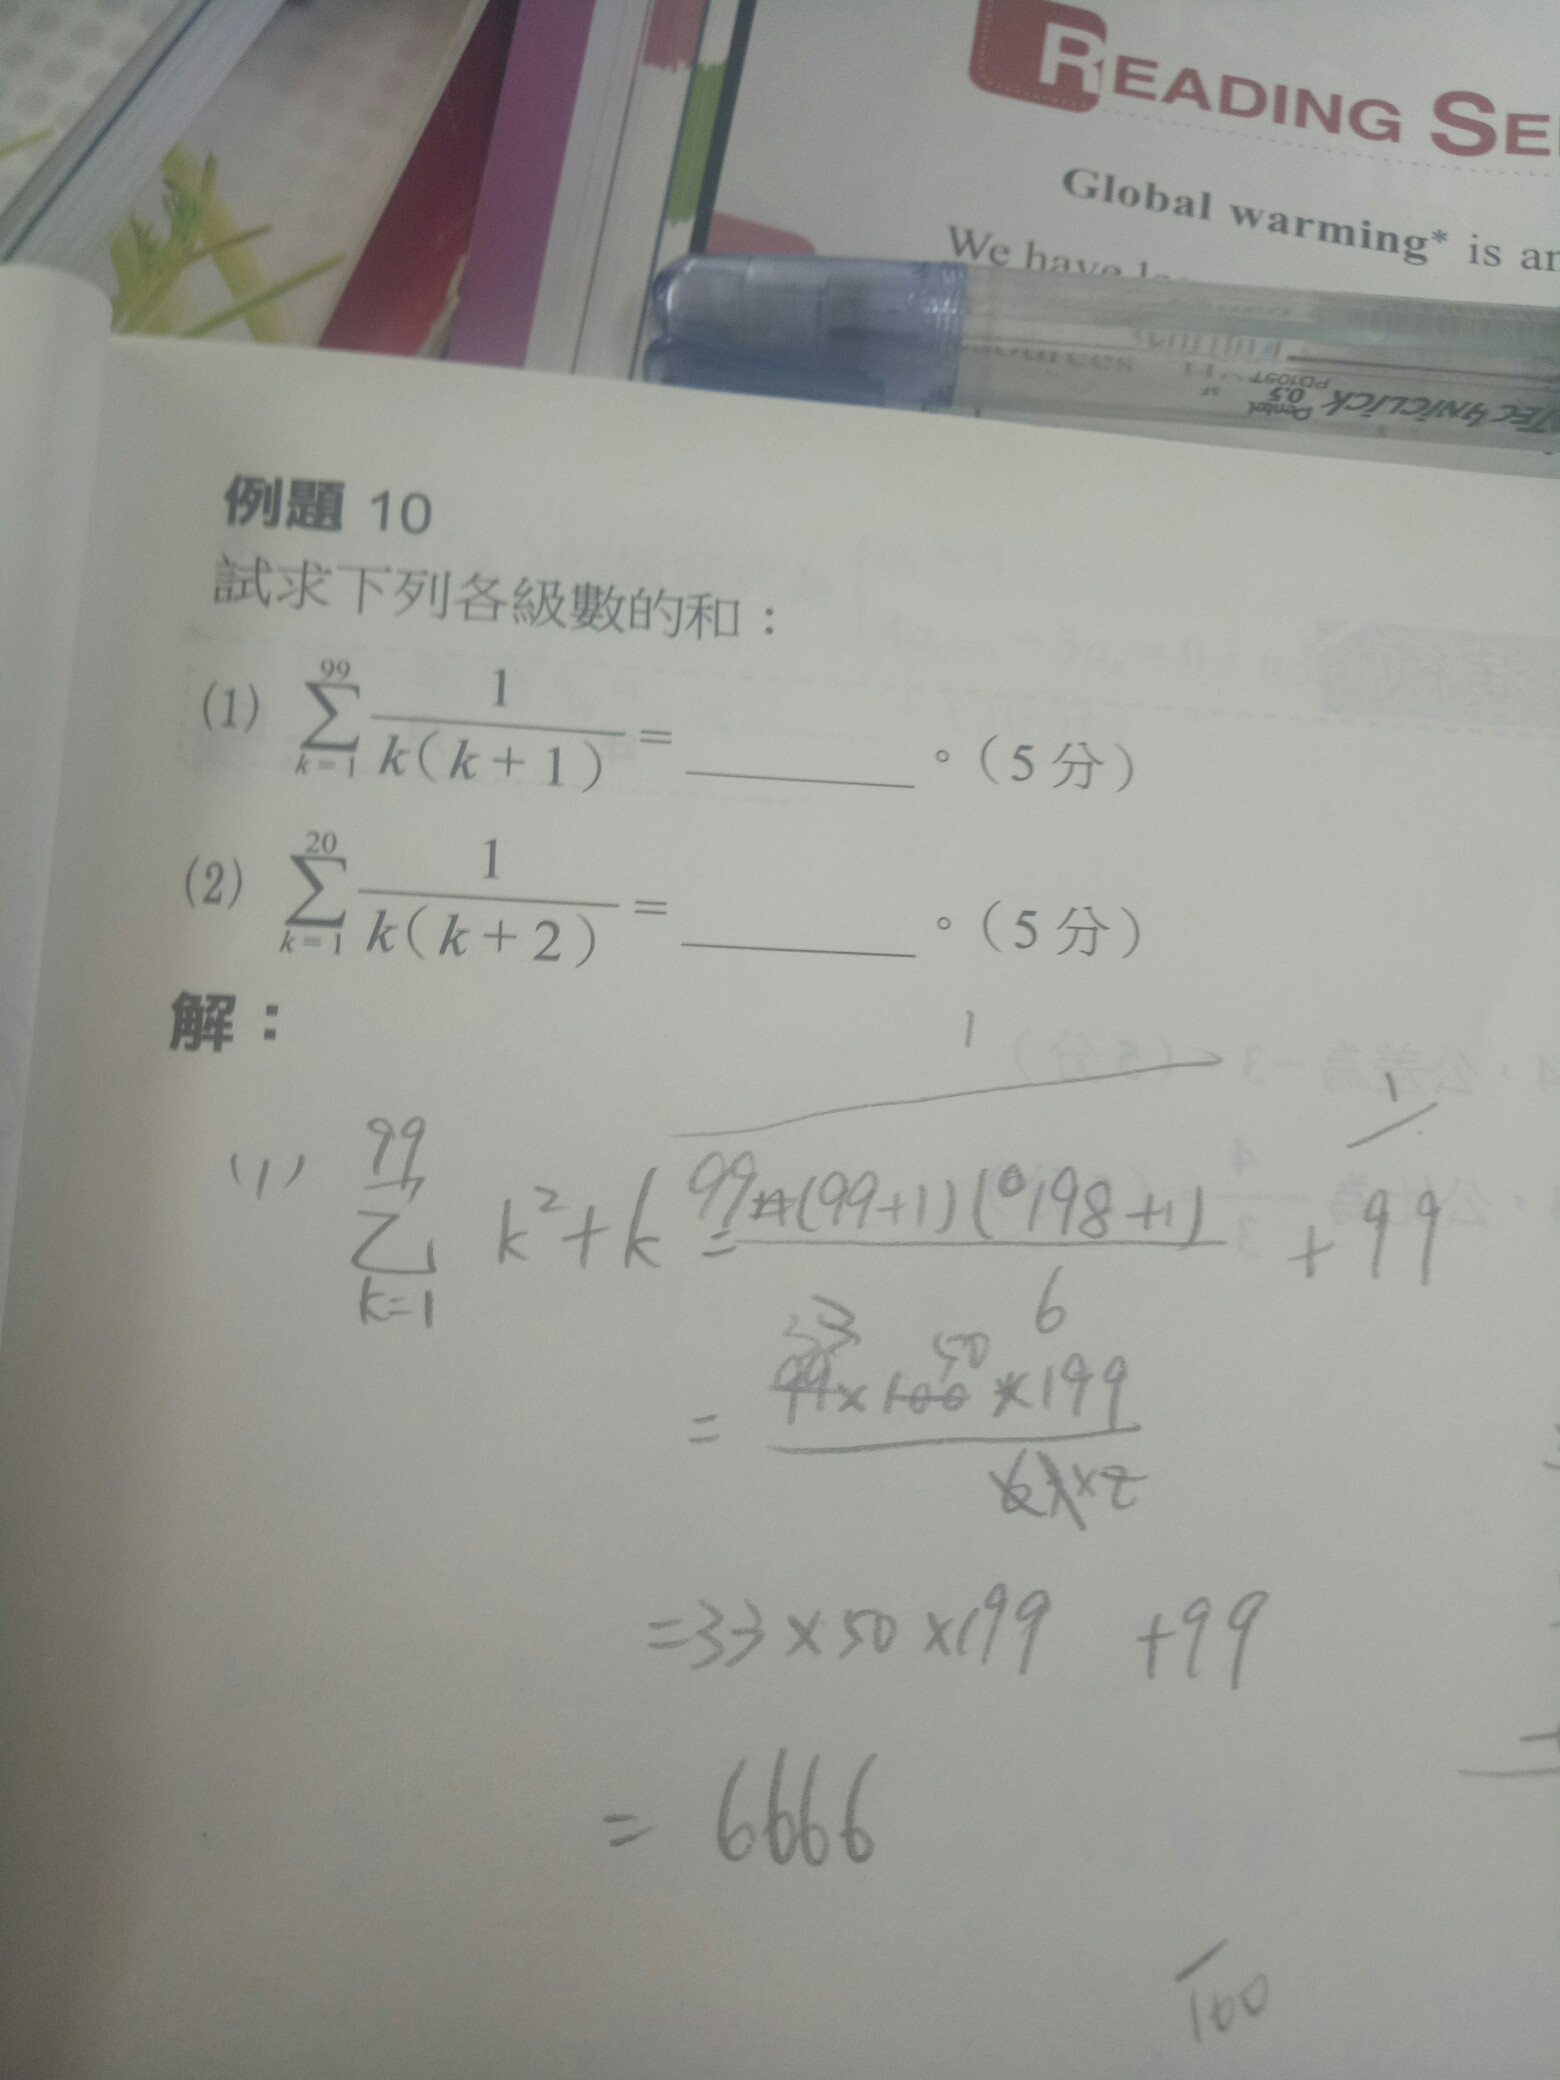 READING SE
Global warming* is an
We have
Pentel 0.5 TECHNICLICK
PD105T
例題 10
試求下列各級數的和：
(1) \sum_{k=1}^{99} \frac{1}{k(k+1)} = ______ 。(5 分)
(2) \sum_{k=1}^{20} \frac{1}{k(k+2)} = ______ 。(5 分)
解：
1
1
(1) \sum_{k=1}^{99} k²+k = \frac{99(99+1)(198+1)}{6} + 99
33 50
= \frac{99×100×199}{6×2}
=33×50×199 +99
= 6666
100